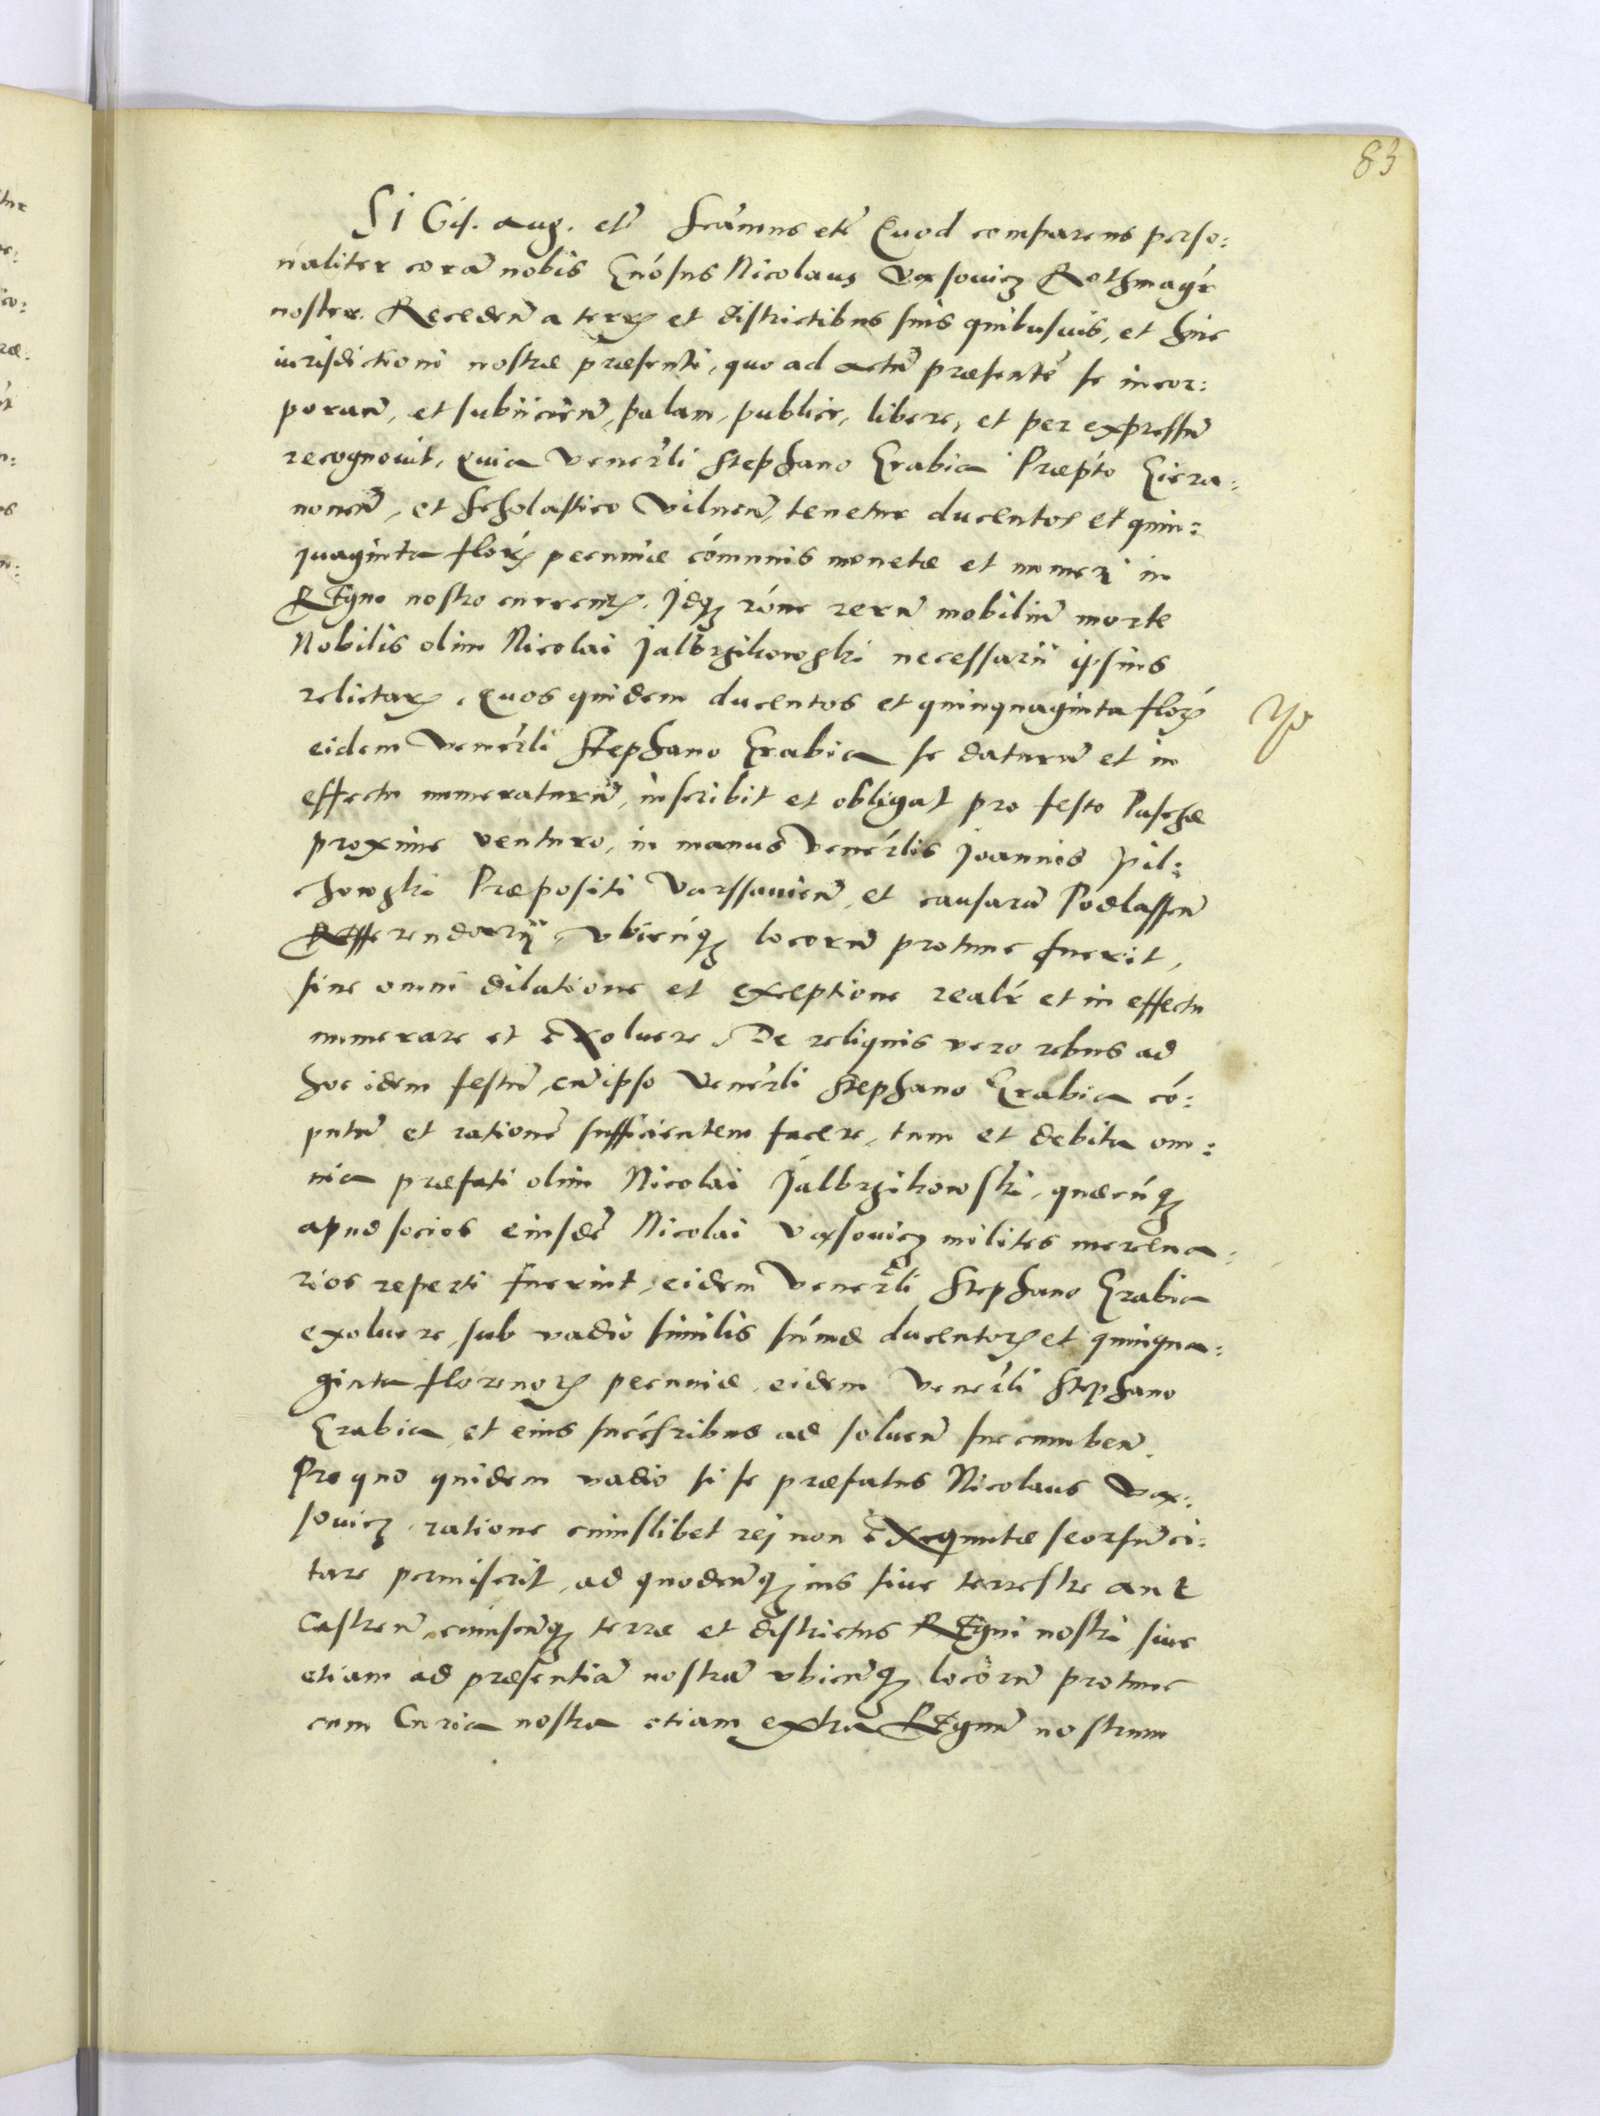 83
SI Gis. Aug. etc̃ fcãmus etc̃ Quod comparens perso:
naliter corã nobis Gñósus Nicolaus Uxsouicz Rothmagr̃
noster. Recedeñ a terris et districtibus suis quibusuis, et huic
iurisdictioni nostræ præsenti, quo ad actũ præsentẽ se incor:
porañ, et subiicieñ, palam, publice, libere, et per expressũ
recognouit, Quia Venerl̃i Stephano Grabia Præp̃to Giera:
nonen̄, et Scholastico Vilneñ, tenetur ducentos et quin:
quaginta floŕ pecuniæ cómunis monetæ et numeri in
REgno nostro curreñ. Idq́ róne rerũ mobiliũ morte
Nobilis olim Nicolai Jalbrzikowski necessarii ipsius
relictarũ. Quos quidem ducentos et quinquaginta floŕ
eidem Venerl̃i Stephano Grabia se daturũ et in
effectu numeraturũ, inscribit et obligat pro festo Paschæ
proxime venturo, in manus Venerl̃is Joannis Pil:
chowski Præpositi Varssauieñ, et causarũ Podlasseñ
REfferendarij, vbicúq́ locorũ protunc fuerit,
sine omni dilatione et exceptione realr̃ et in effectu
numerare et EXoluere. De reliquis vero rebus ad
hoc idem festũ, cũ ipso Venerl̃i Stephano Grabia có:
putũ et rationẽ sufficientem facere, tum et debita om:
nia præfati olim Nicolai Jalbrzikowski, quæcúq́
apud socios eiusdẽ Nicolai Uxsouicz milites mercena:
rios reperti fuerint, eidem Venerl̃i Stephano Grabia
exoluere, sub vadio similis súmæ ducentorũ et quinqua:
ginta florenorũ pecuniæ, eidem Venerl̃i Stephano
Grabia, et eius succésribus ad solueñ succumbeñ.
Pro quo quidem vadio si se præfatus Nicolaus Ux:
souicz, ratione cuiuslibet rej non EXequutæ seorsũ ci:
tare permiserit, ad quodcũq́ ius siue terrestre aut
Castreñ, cuiuscũq́ terræ et districtus REgni nostri, siue
etiam ad præsentiã nostrã vbicũq́ locorũ protunc
cum Curia nostra etiam extra REgnũ nostrum